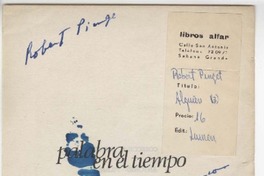 Robert Pinge
libros altar
Calle San Antonio
Telefono
Sabana Grande
Robert Pinget
Título:
Alguien
Precio: 16
Edit: Lumen
palabra
en el tiempo